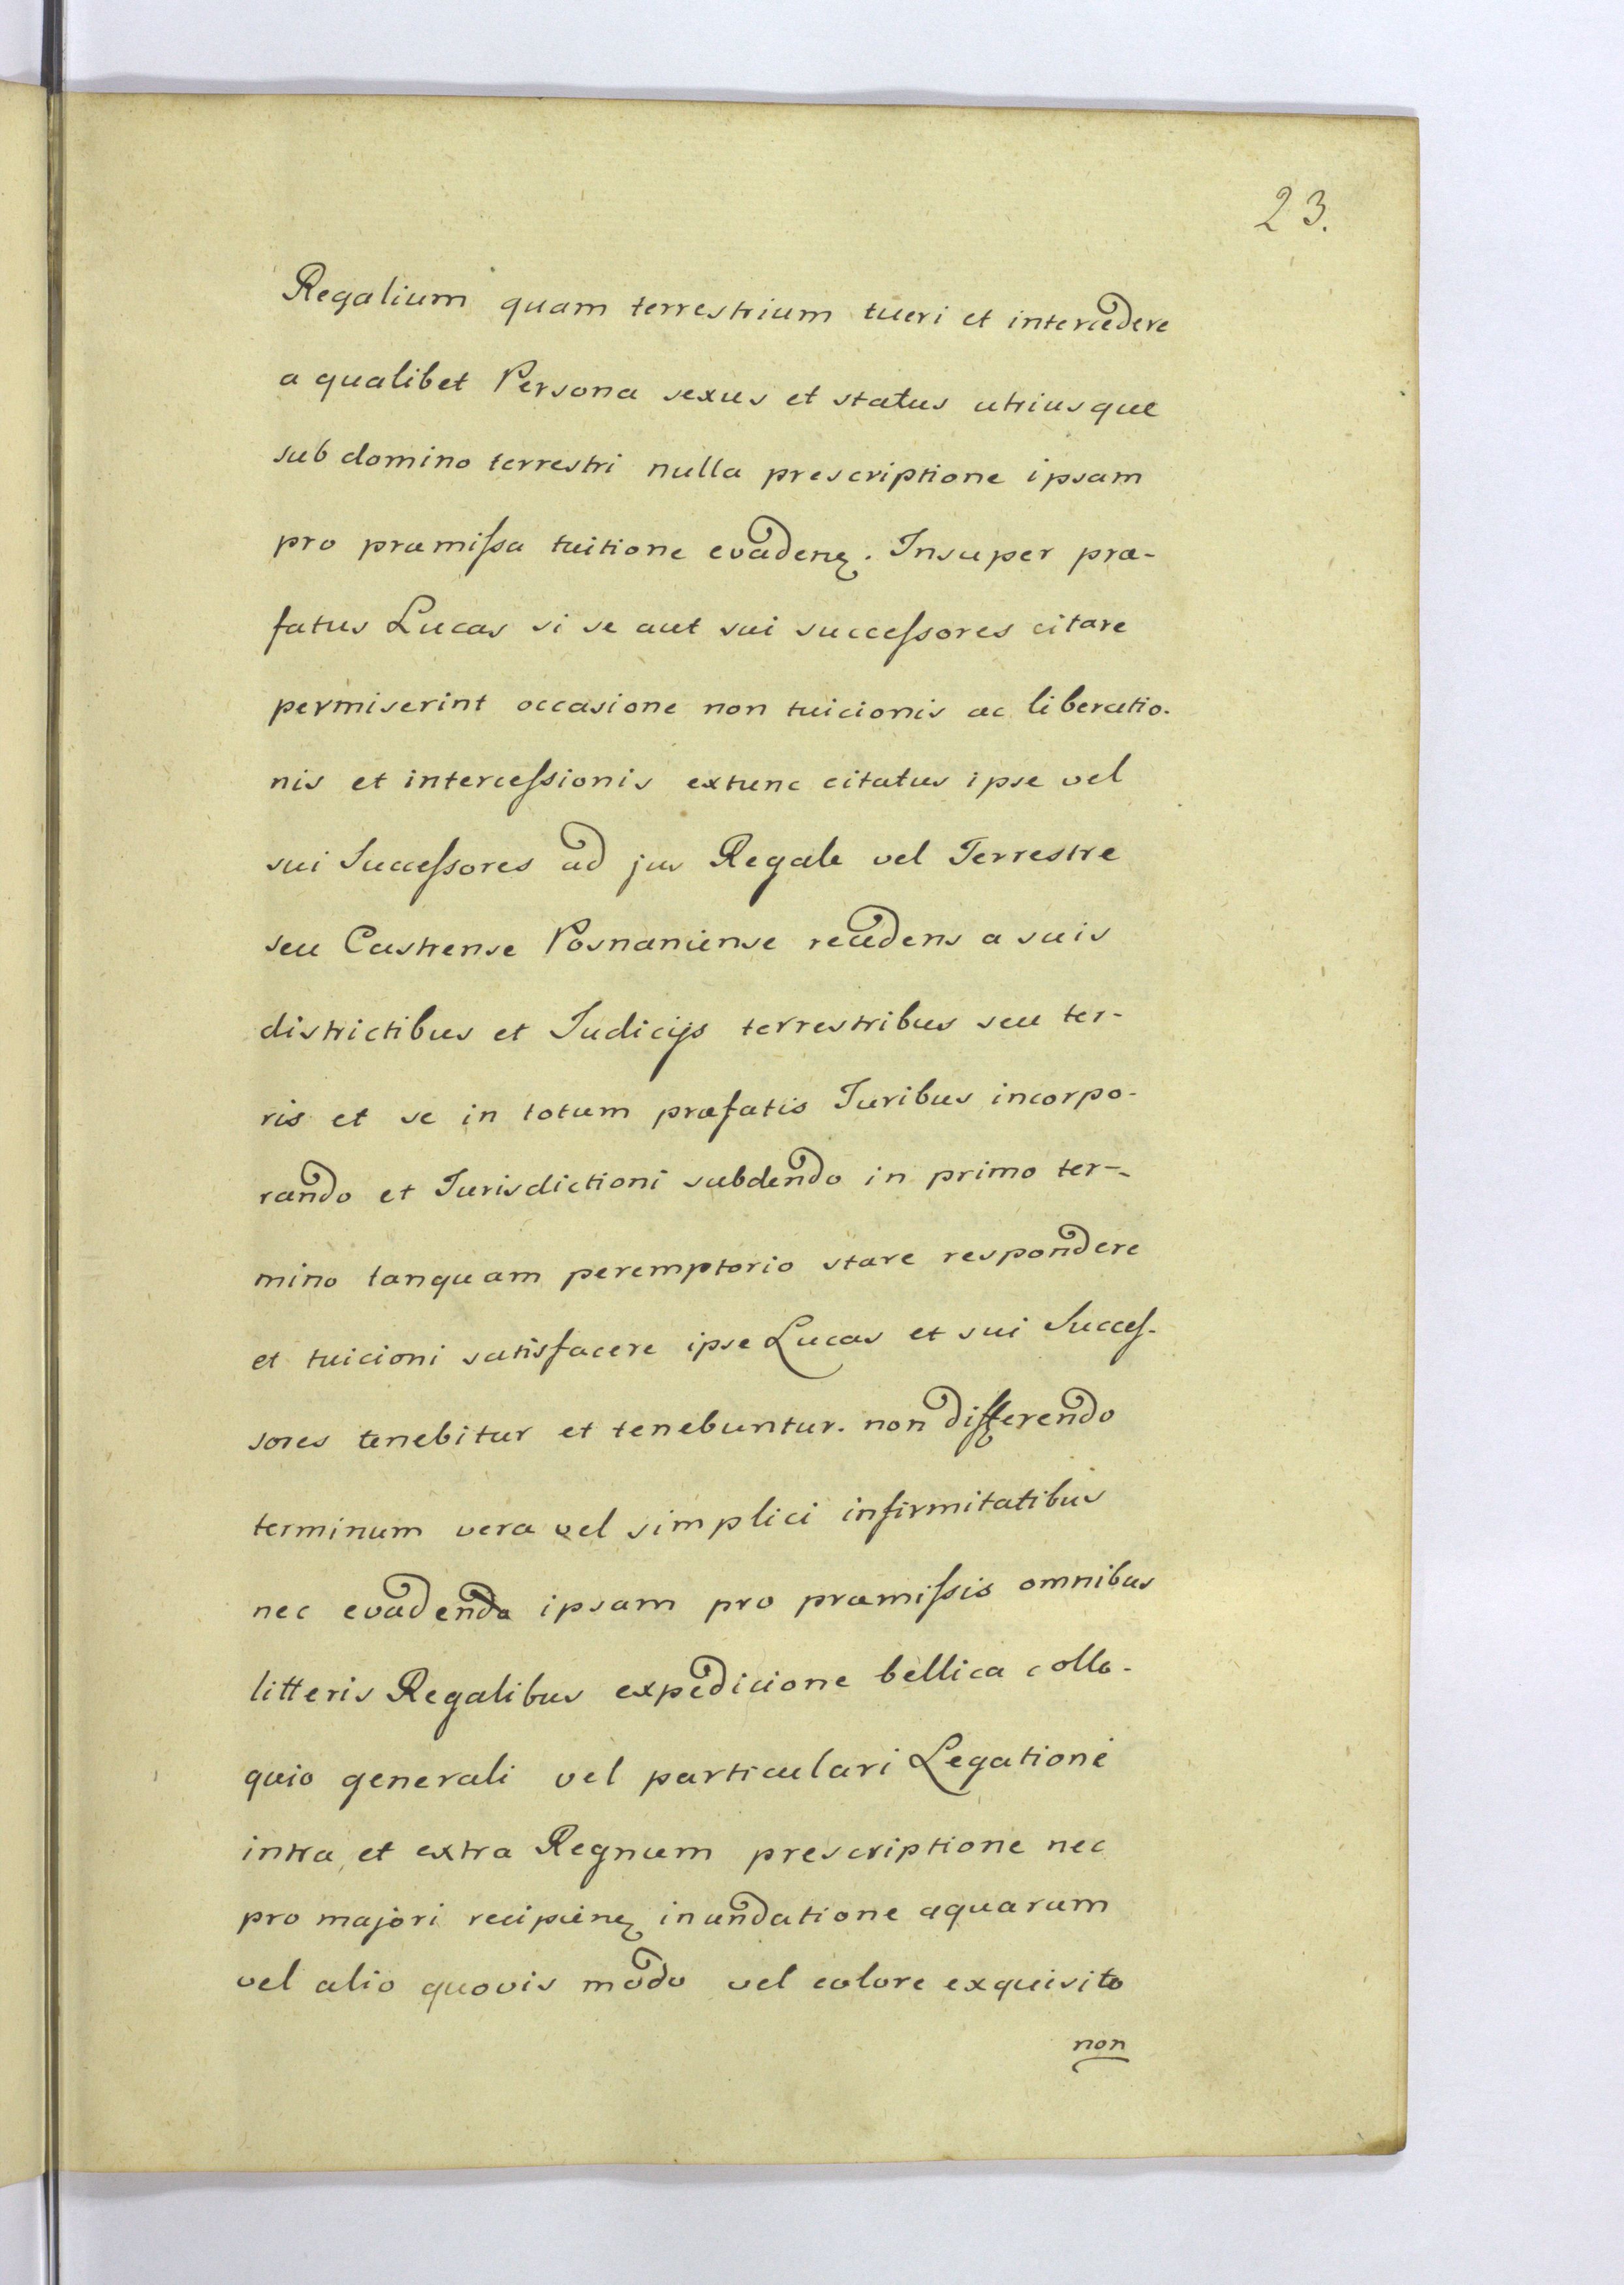 23.
Regalium quam terrestrium tueri et intercedere
a qualibet Persona sexus et status utriusque
sub domino terrestri nulla prescriptione ipsam
pro præmiſsa tuitione evadenꝫ. Insuper præ-
fatus Lucas si se aut sui succeſsores citare
permiserint occasione non tuicionis ac liberatio-
nis et interceſsionis extunc citatus ipse vel
sui Succeſsores ad jus Regale vel Terrestre
seu Castrense Posnaniense recedens a suis
districtibus et Iudicijs terrestribus seu ter-
ris et se in totum præfatis Iuribus incorpo-
rando et Iurisdictioni subdendo in primo ter-
mino tanquam peremptorio stare respondere
et tuicioni satisfacere ipse Lucas et sui Succeſ-
sores tenebitur et tenebuntur. non differendo
terminum vera vel simplici infirmitatibus
nec evadenda ipsam pro præmiſsis omnibus
litteris Regalibus expedicione bellica collo-
quio generali vel particulari Legatione
intra et extra Regnum prescriptione nec
pro majori recipienꝫ inundatione aquarum
vel alio quovis modo vel colore exquisito
non